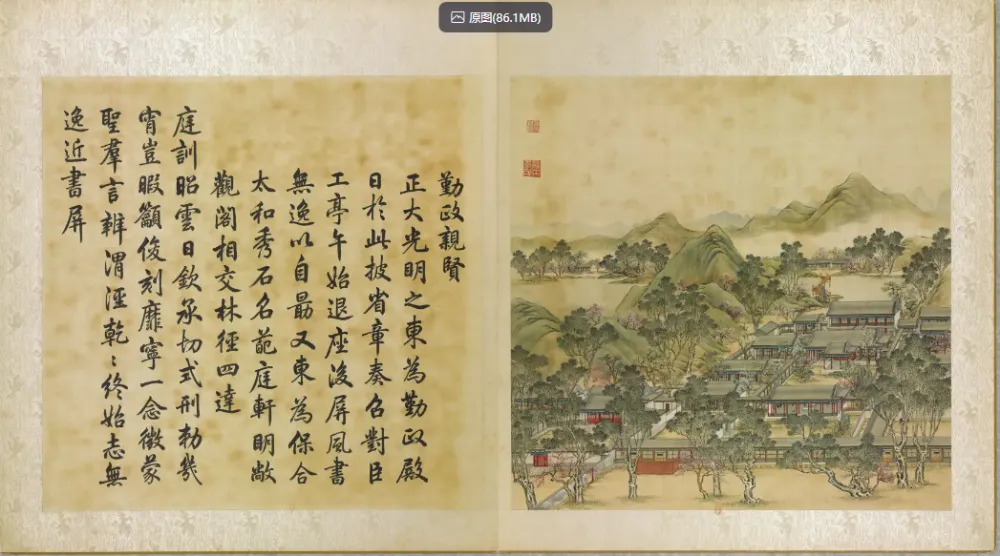 原图(86.1MB)
勤政親賢
正大光明之東為勤政殿
日於此披省章奏召對臣
工亭午始退座後屏風書
無逸以自朂又東為保合
太和秀石名葩庭軒明敞
觀閣相交林徑四達
庭訓昭雲日欽承切式刑勑幾
宵豈暇籲俊刻靡寧一念徵蒙
聖羣言辨渭涇乾〻終始志無
逸近書屏